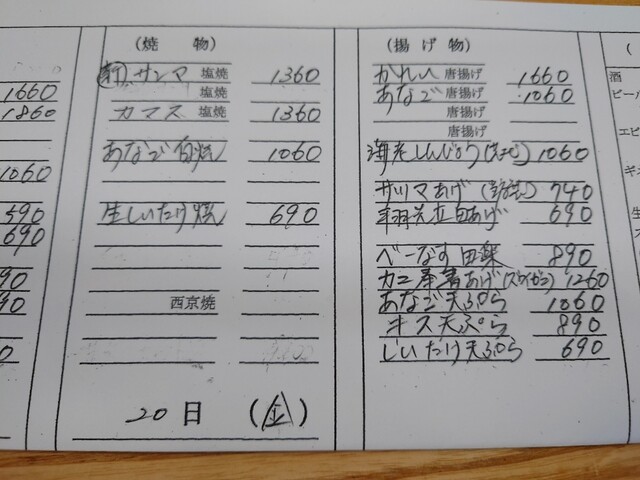 1660
1860
1060
590
690
90
90
0
(焼 物)
新 サンマ 塩焼 1360
塩焼
カマス 塩焼 1360
あなご白焼 1060
生しいたけ焼 690
西京焼
20日 (金)
(揚げ物)
かれい 唐揚げ 1660
あなご 唐揚げ 1060
唐揚げ
唐揚げ
海老しんじょう 1060
サツマあげ 740
あげ 690
べーなす田楽 890
カニ奉書あげ(ズワイガニ) 1260
あなご天ぷら 1060
キス天ぷら 890
しいたけ天ぷら 690
(
酒
ビール
エビ
生